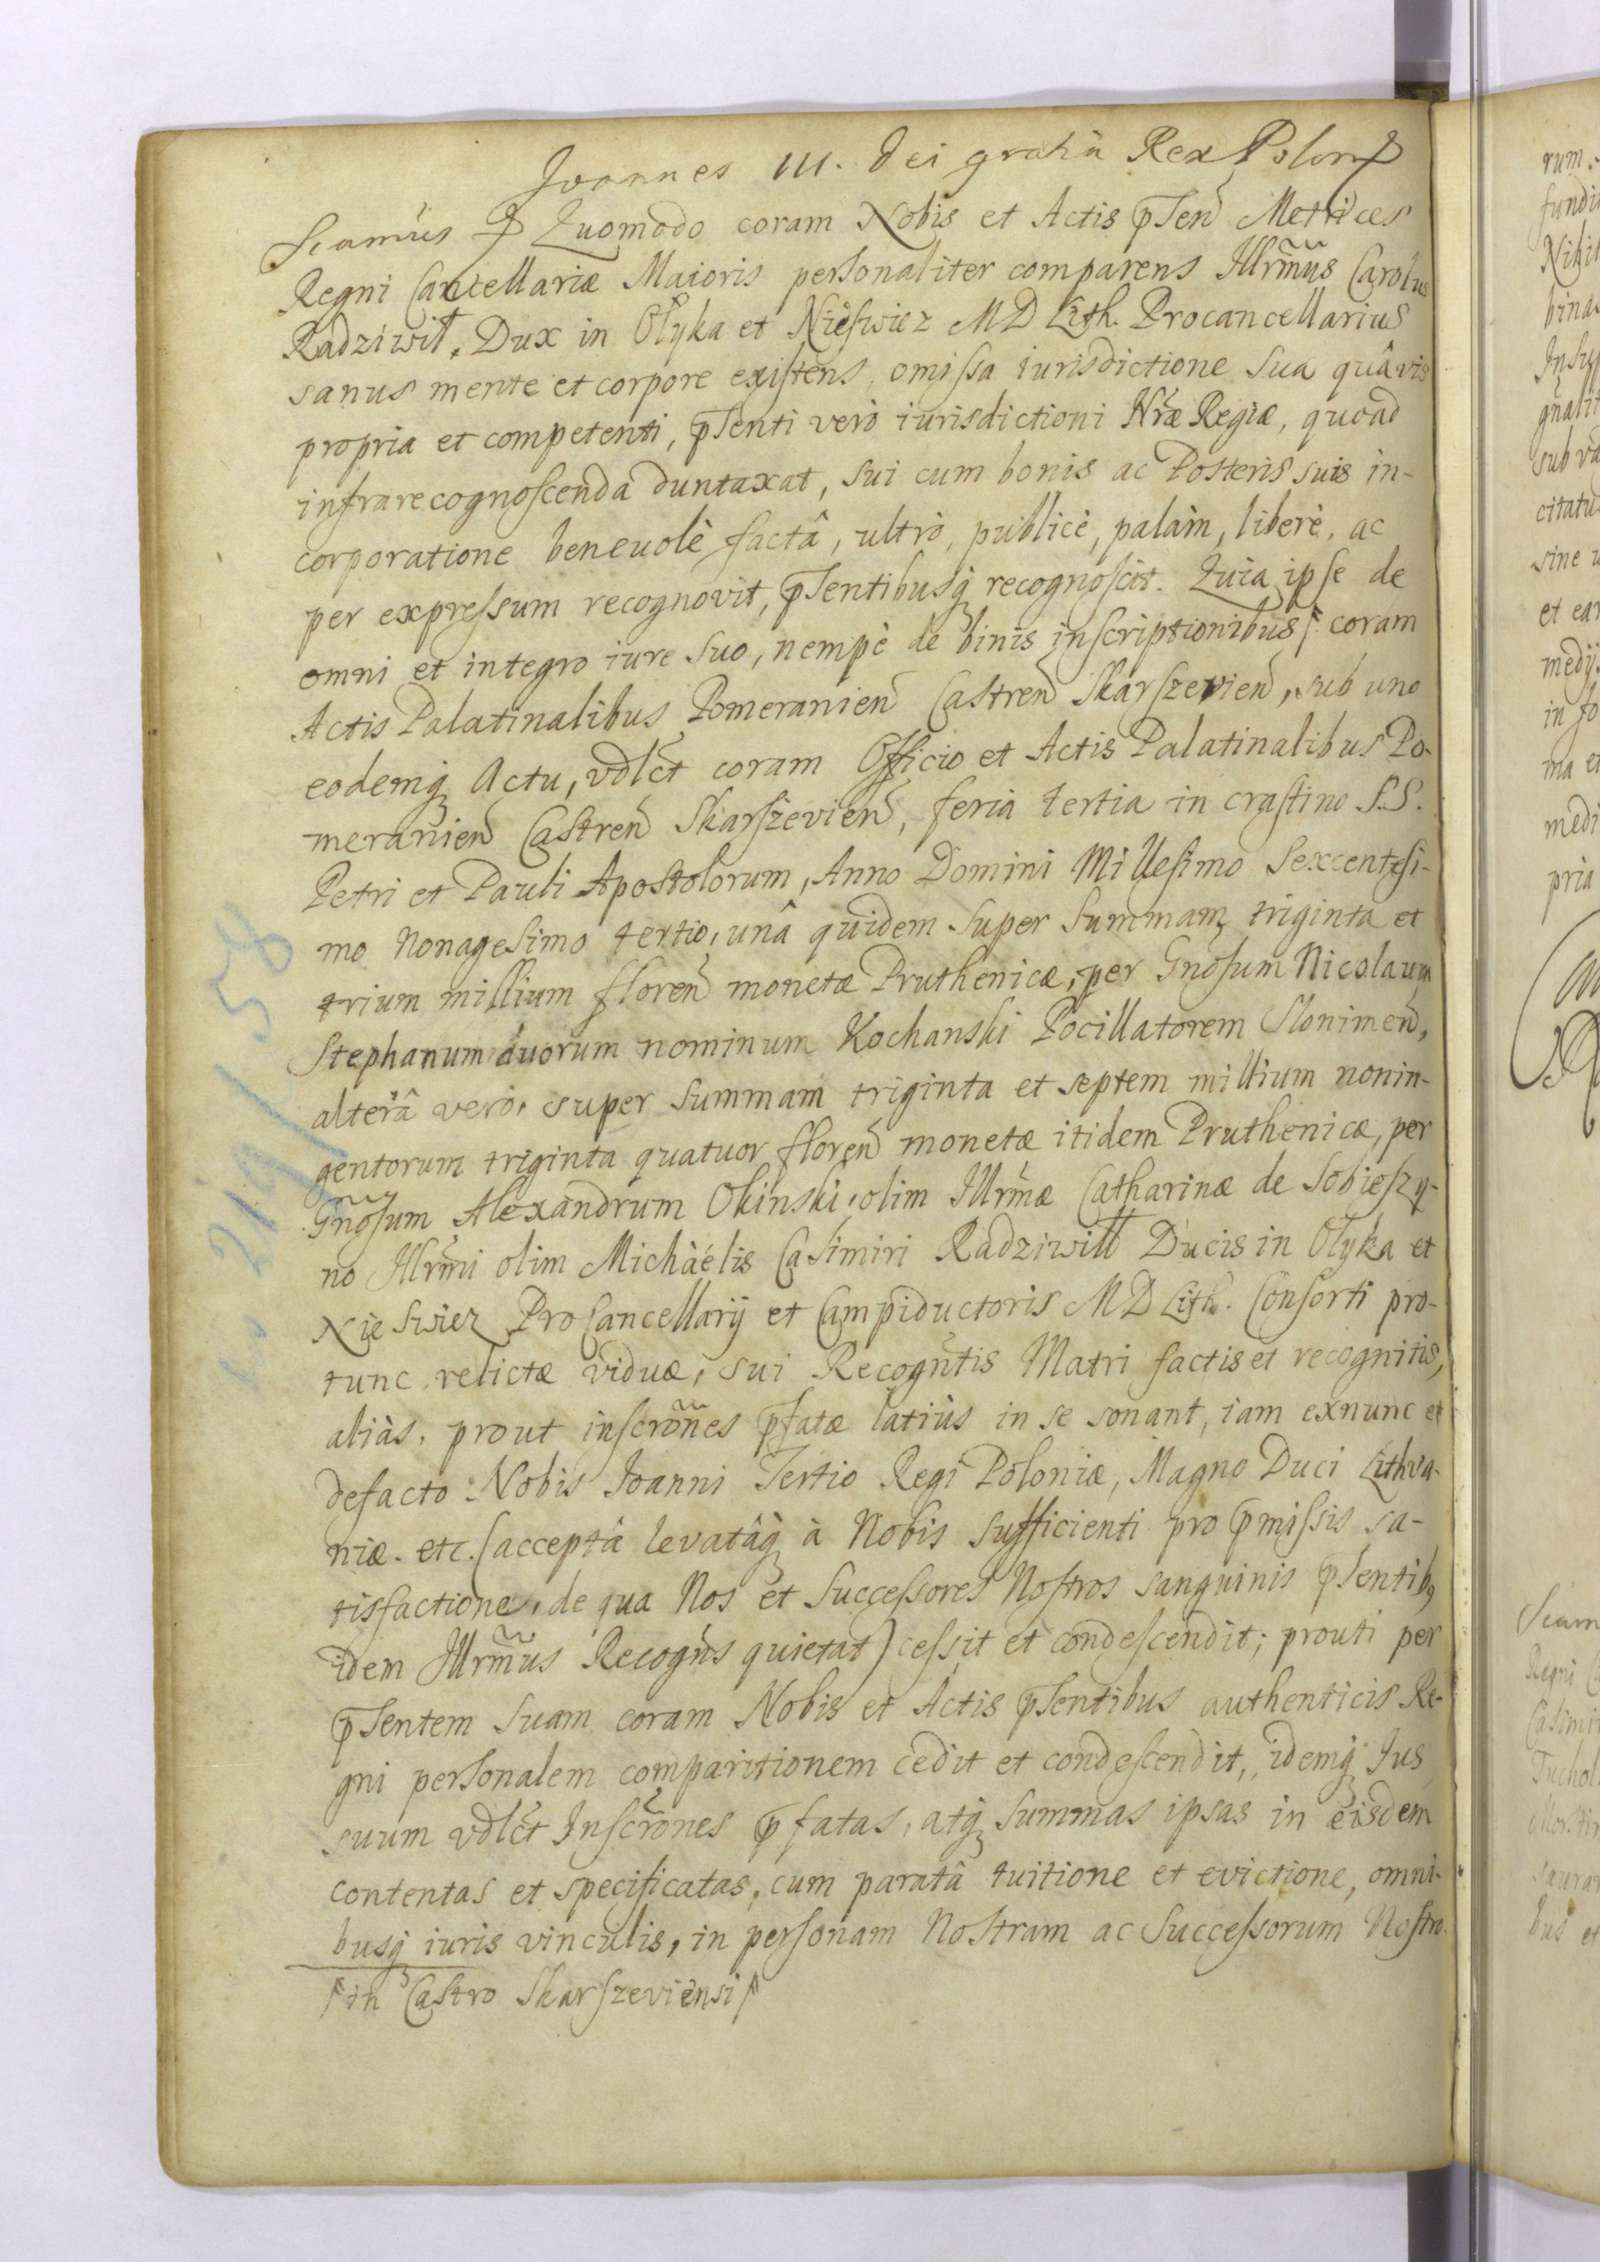 Joannes III. Dei gratia Rex Polon
Scamus Quomodo coram Nobis et Actis pñsen Metrices
Regni Cancellariæ Maioris personaliter comparens Illrm̃us Carolus
Radziwił, Dux in Ołyka et Nieswiez MD Lith. Procancellarius
sanus mente et corpore existens, omissa iurisdictione sua quâvis
propria et competenti, pñsenti verò iurisdictioni Nr̃æ Regiæ, quoad
infrarecognoscenda duntaxat, sui cum bonis ac Posteris suis in-
corporatione benevolè factâ, ultrò, publicè, palàm, liberè, ac
per expressum recognovit, pñsentibusq; recognoscit. Quia ipse de
omni et integro iure suo, nempè de binis inscriptionibus ⌈ coram
Actis Palatinalibus Pomeranien Castren Skarszevien, sub uno
eodemq; Actu, vdlct coram Officio et Actis Palatinalibus Po-
meranien Castren Skarszevien, feria tertia in crastino S.S.
Petri et Pauli Apostolorum, Anno Domini Millesimo Sexcentesi-
mo Nonagesimo tertio, unâ quidem super summam triginta et
trium millium floren monetæ Pruthenicæ, per Gnosum Nicolaum
Stephanum duorum nominum Kochanski Pocillatorem Slonimen,
alterâ verò, super summam triginta et septem millium nonin-
gentorum triginta quatuor floren monetæ itidem Pruthenicæ, per
Gñosum Alexandrum Okinski, olim Illrmæ Catharinæ de Sobieszy-
no Illrmi olim Michàélis Casimiri Radziwiłł Ducis in Olyka et
Nieswiez ProCancellarij et Campiductoris MD Lith. Consorti pro-
tunc relictæ viduæ, sui Recogntis Matri factis et recognitis,
aliàs, prout inscrõnes pfatæ latiùs in se sonant, iam exnunc et
defacto Nobis Joanni Tertio Regi Poloniæ, Magno Duci Lithva-
niæ. etc. (acceptâ levatâq; à Nobis sufficienti pro pmissis sa-
tisfactione, de qua Nos et Successores Nostros sanguinis pñsentib9
idem Illrm̃us Recogns quietat) cessit et condescendit; prouti per
pñsentem suam coram Nobis et Actis pñsentibus authenticis Re-
gni personalem comparitionem cedit et condescendit, idemq; Jus
suum vdlct Inscrõnes pfatas, atq; summas ipsas in eisdem
contentas et specificatas, cum paratâ tuitione et evictione, omni-
busq; iuris vinculis, in personam Nostram ac Successorum Nostro-
⌈ in Castro Skarszeviensi ⌈
219/58
rum
fundi
Nihil
bina
sub va
citatu
sine
et ea
medij
in fo
ma et
medi
pria
Scam
Regni
Casimi
Tuchol
bus et